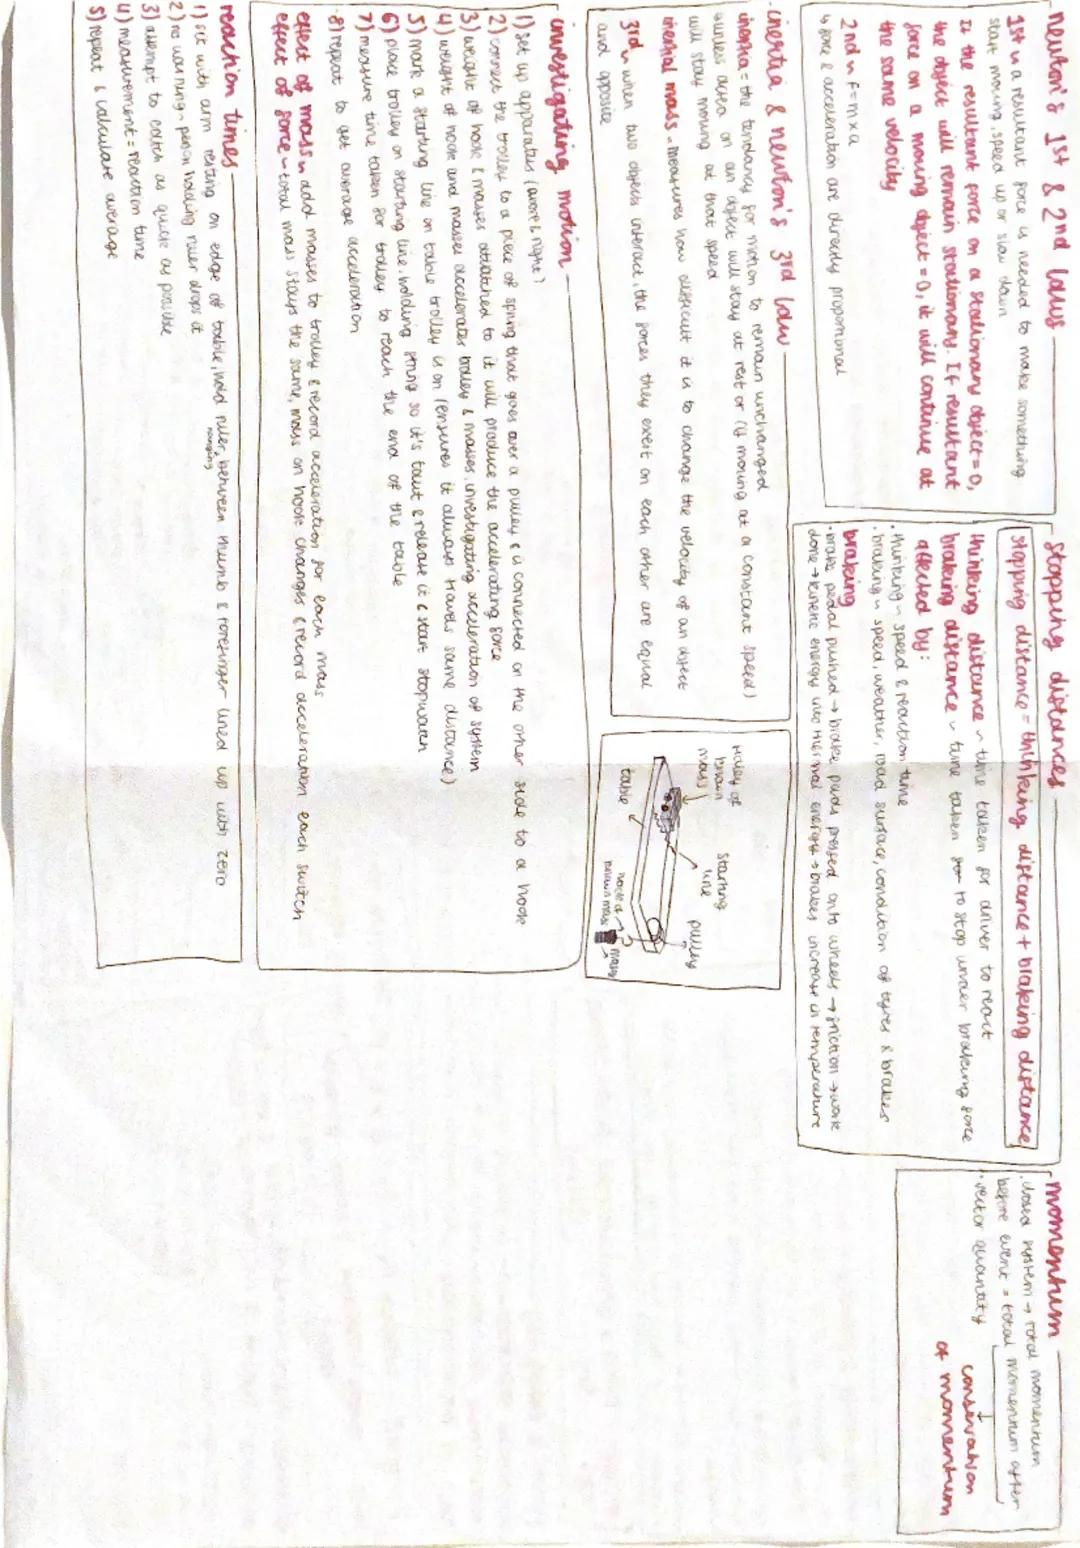 newton's 1st & 2nd laws
1st ~ a resultant force is needed to make something
start moving, speed up or slow down
If the resultant force on a stationary object = 0,
the object will remain stationary. If resultant
force on a moving object = 0, it will continue at
the same velocity
2nd ~ F=mxa
↳ force & acceleration are directly proportional
stopping distances
stopping distance = thinking distance + braking distance
thinking distance ~ time taken for driver to react
braking distance ~ time taken to stop under braking force
affected by:
• thinking ~ speed & reaction time
• braking ~ speed, weather, road surface, condition of tyres & brakes
braking
• brake pedal pushed → brake pads pressed onto wheels → friction → work
done → kinetic energy into thermal energy → brakes increase in temperature
momentum
• closed system → total momentum
before event = total momentum after
• vector quantity
conservation
of momentum
• inertia & newton's 3rd law
inertia = the tendancy for motion to remain unchanged
↳ unless acted on an object will stay at rest or (if moving at a constant speed)
will stay moving at that speed
inertial mass ~ measures how difficult it is to change the velocity of an object
3rd ~ when two objects interact, the forces they exert on each other are equal
and opposite
trolley of
known
mass
starting
line
pulley
table
hook of
known mass
mass
investigating motion
1) set up apparatus (
2) connect the trolley to a piece of string that goes over a pulley & is connected on the other side to a hook
3) weight of hook & masses attatched to it will produce the accelerating force
4) weight of hook and masses accelerates trolley & masses, investigating acceleration of system
5) mark a starting line on table trolley is on (ensures it always travels same distance)
6) place trolley on starting line, holding string so it's taut & release it & start stopwatch
7) measure time taken for trolley to reach the end of the table
8) repeat to get average acceleration
effect of mass ~ add masses to trolley & record acceleration for each mass
effect of force ~ total mass stays the same, mass on hook changes & record acceleration each switch
reaction times
1) sit with arm resting on edge of table, hold ruler hanging between thumb & forefinger lined up with zero
2) no warning - person holding ruler drops it
3) attempt to catch as quick as possible
4) measurement = reaction time
5) repeat & calculate average